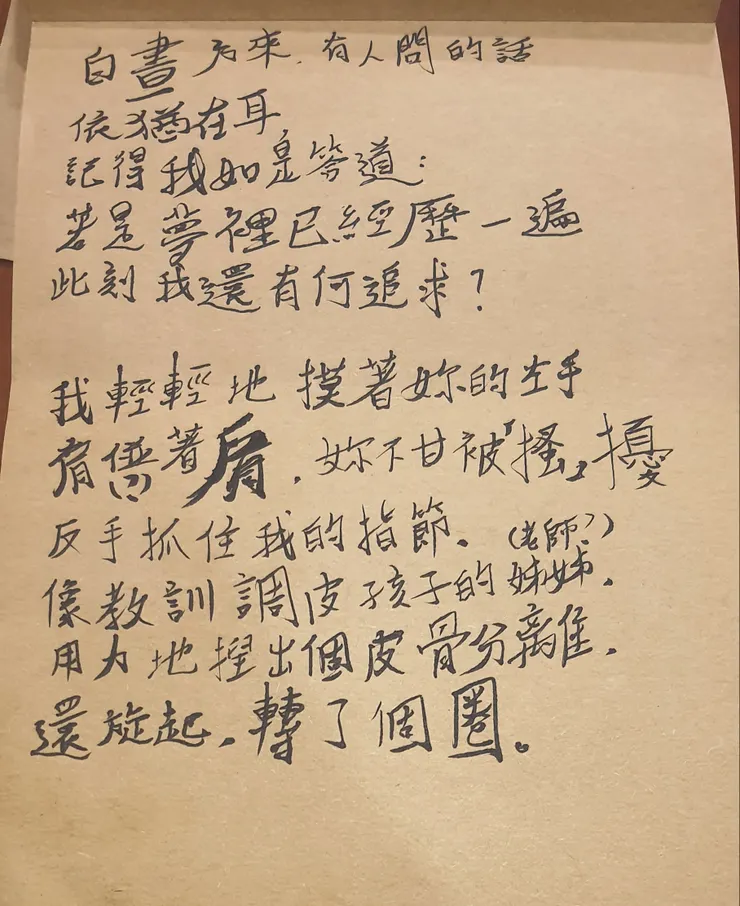 白晝後來，有人問的話
依猶在耳
記得我如是答道：
若是夢裡已經歷一遍
此刻我還有何追求？
我輕輕地摸著妳的左手
肩偎著肩，妳不甘被「搔」擾
反手抓住我的指節。（老師？）
像教訓調皮孩子的姊姊，
用力地捏出個皮骨分離，
還旋起，轉了個圈。